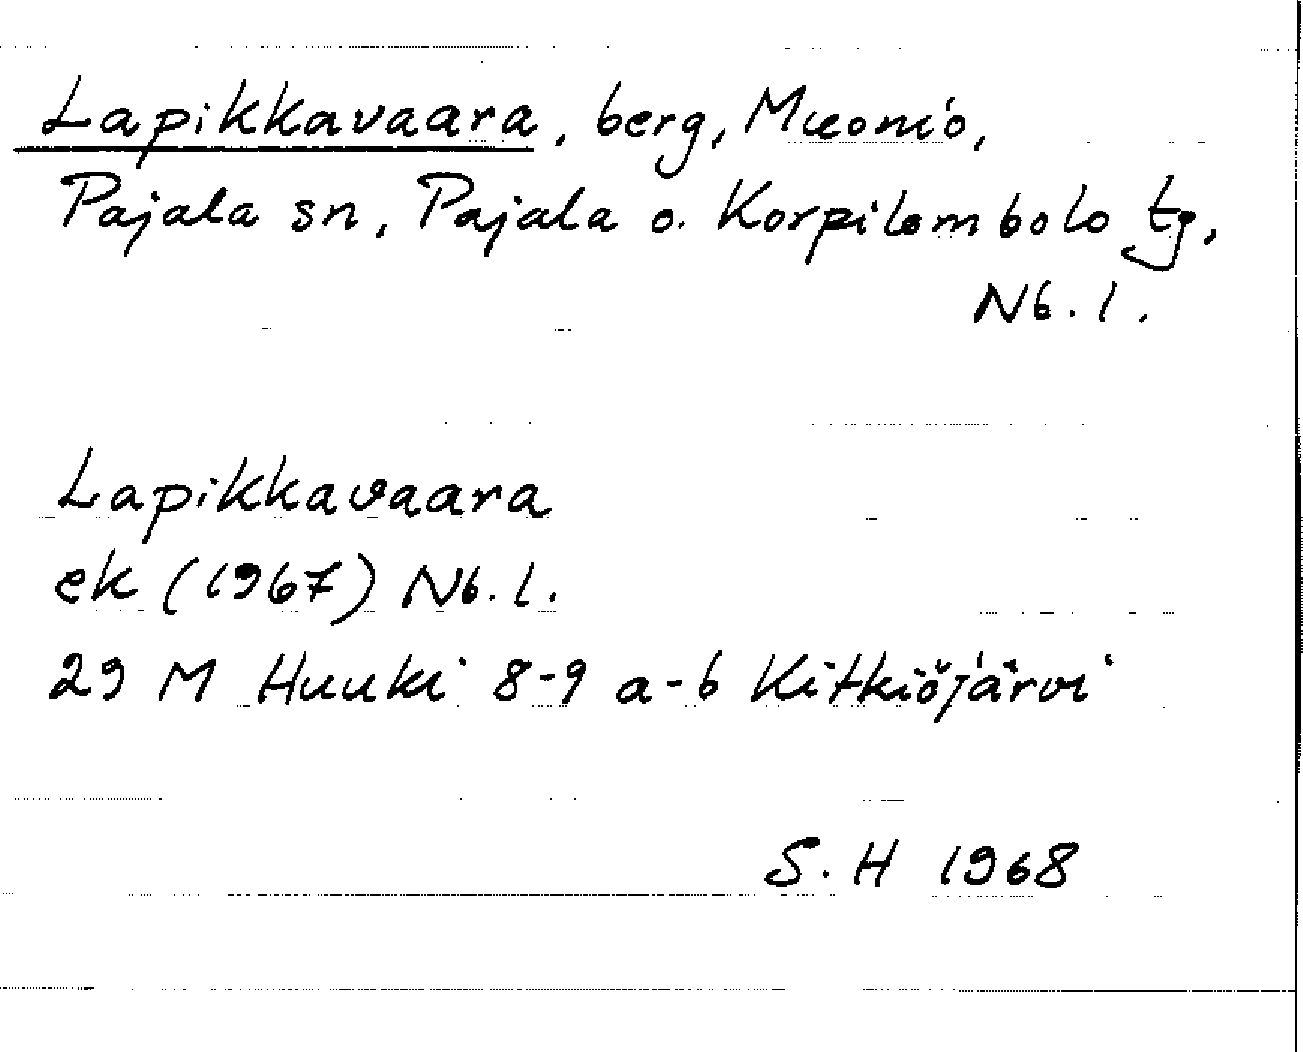 Lapikkavaara, berg, Muonio,
Pajala sn, Pajala o. Korpilombolo tg,
Nb. l.
Lapikkavaara
ek (1967) Nb. l.
29 M Huuki 8-9 a-b Kitkiöjärvi
S. H 1968